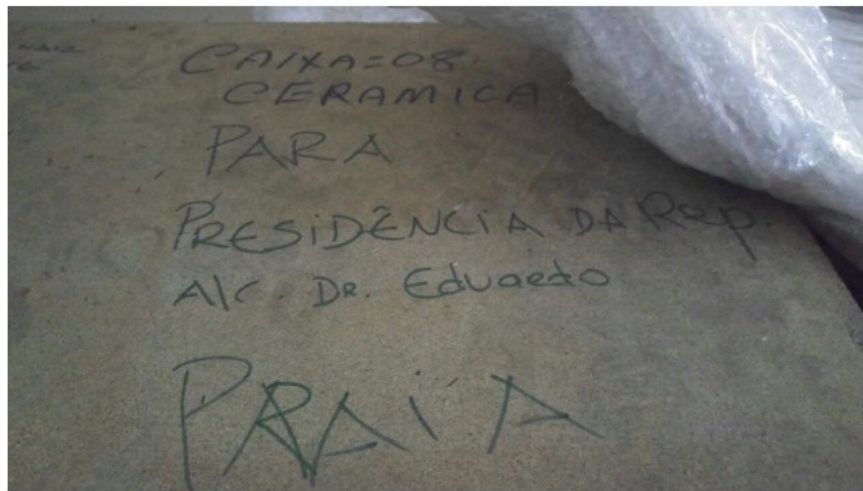 CAIXA=08
CERAMICA
PARA
PRESIDÊNCIA DA Rep.
A/C. DR. Eduardo
PRAIA